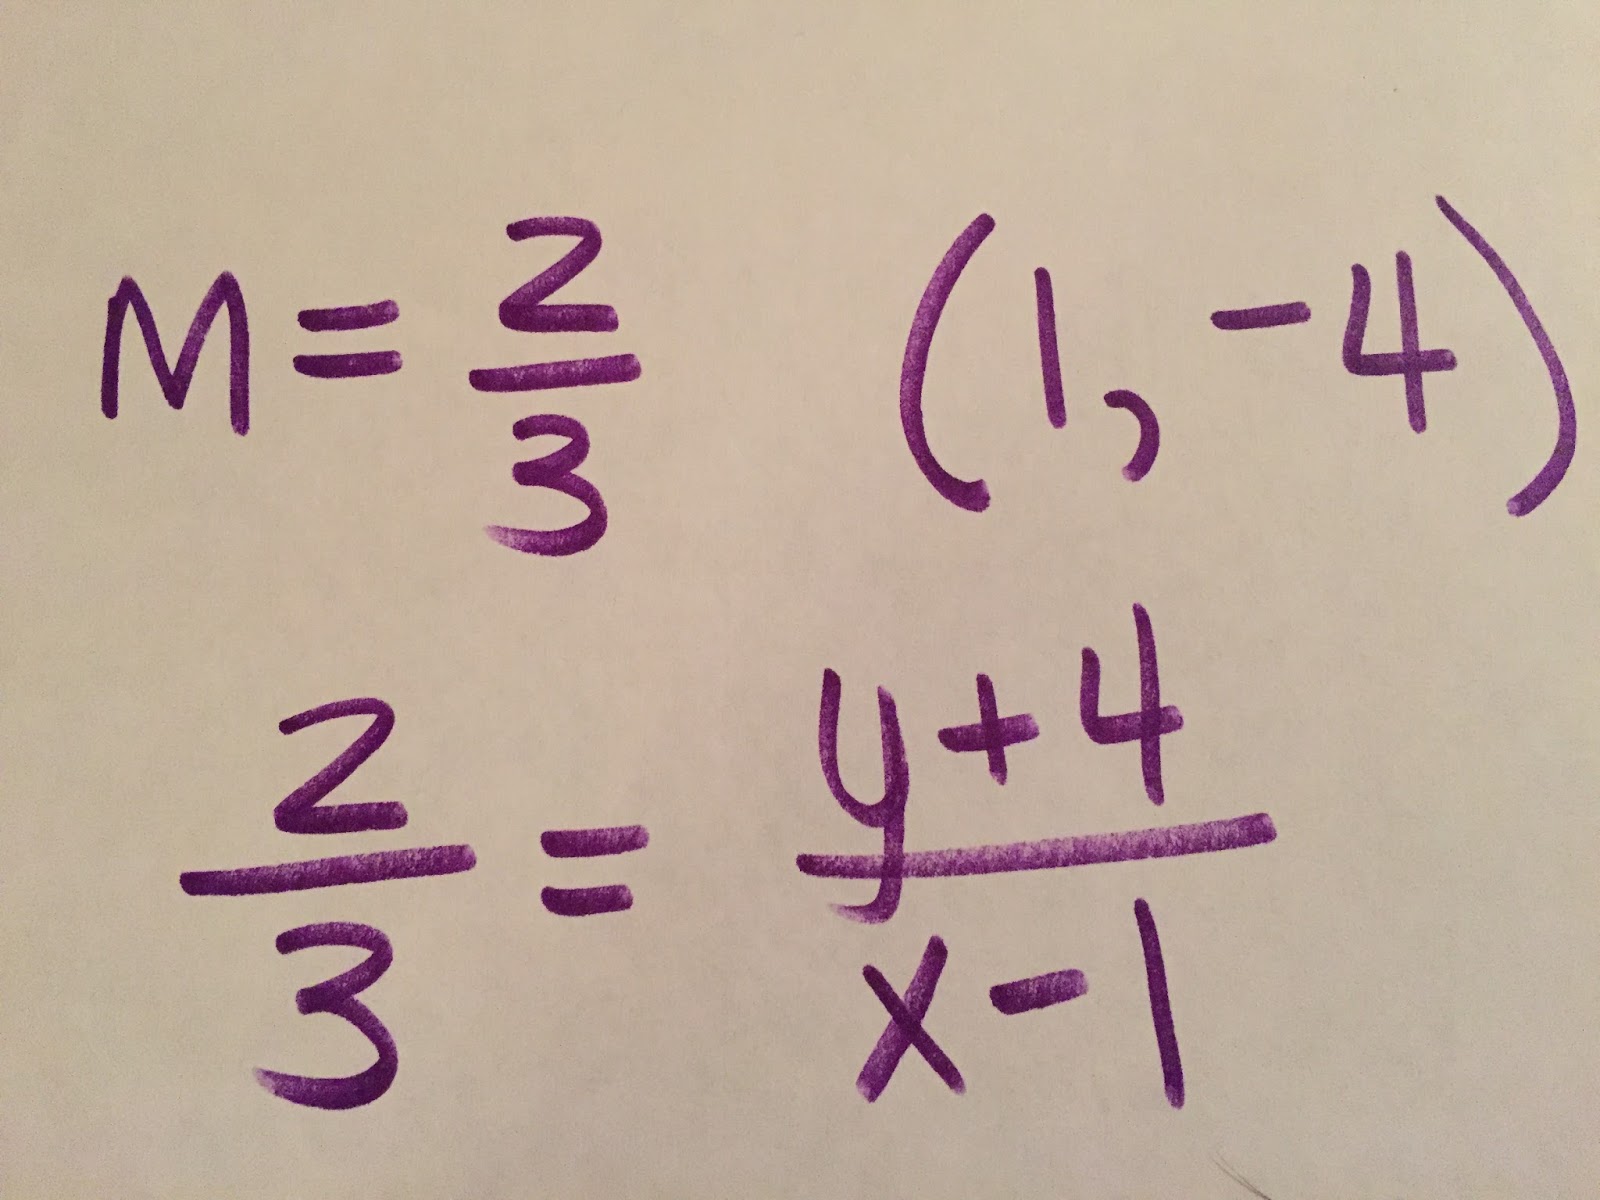 M = 2/3 (1, -4)
2/3 = y+4/x-1